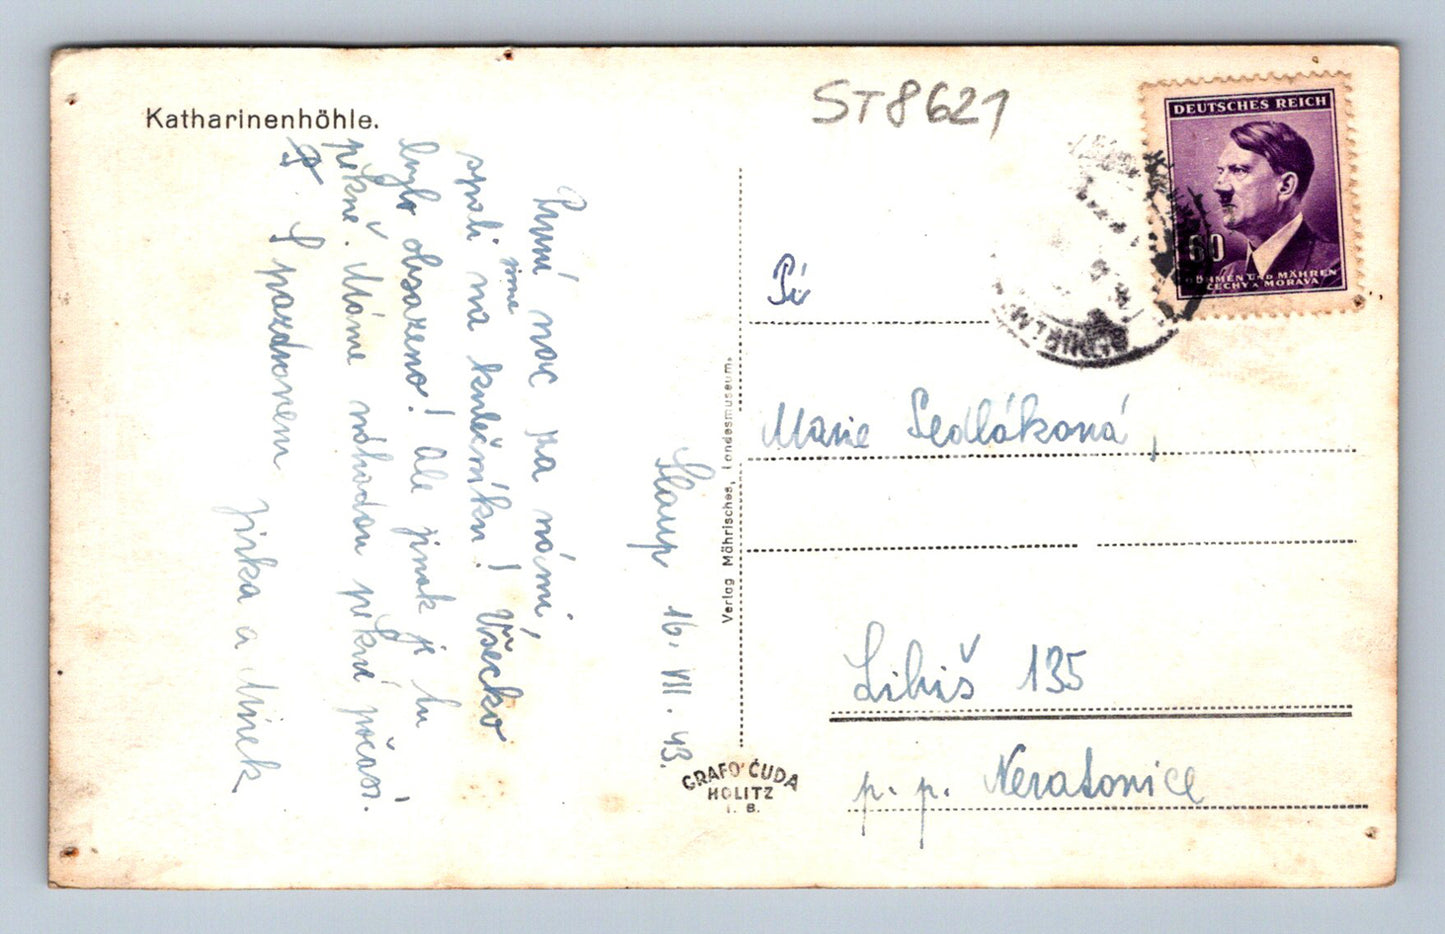 Katharinenhöhle.
ST8621
DEUTSCHES REICH
60
BÖHMEN UND MÄHREN
ČECHY A MORAVA
První noc za námi,
spali jsme na kulečníku! Všecko
bylo obsazeno! Ale jinak je tu
pěkně. Máme náhodou pěkné počasí.
S pozdravem
Jirka a Mirek
Slaup 16. VII. 43.
Verlag Mährisches, Landesmuseum.
GRAFO ČUDA
HOLITZ
I. B.
Marie Sedláková,
Libiš 135
p. p. Neratovice